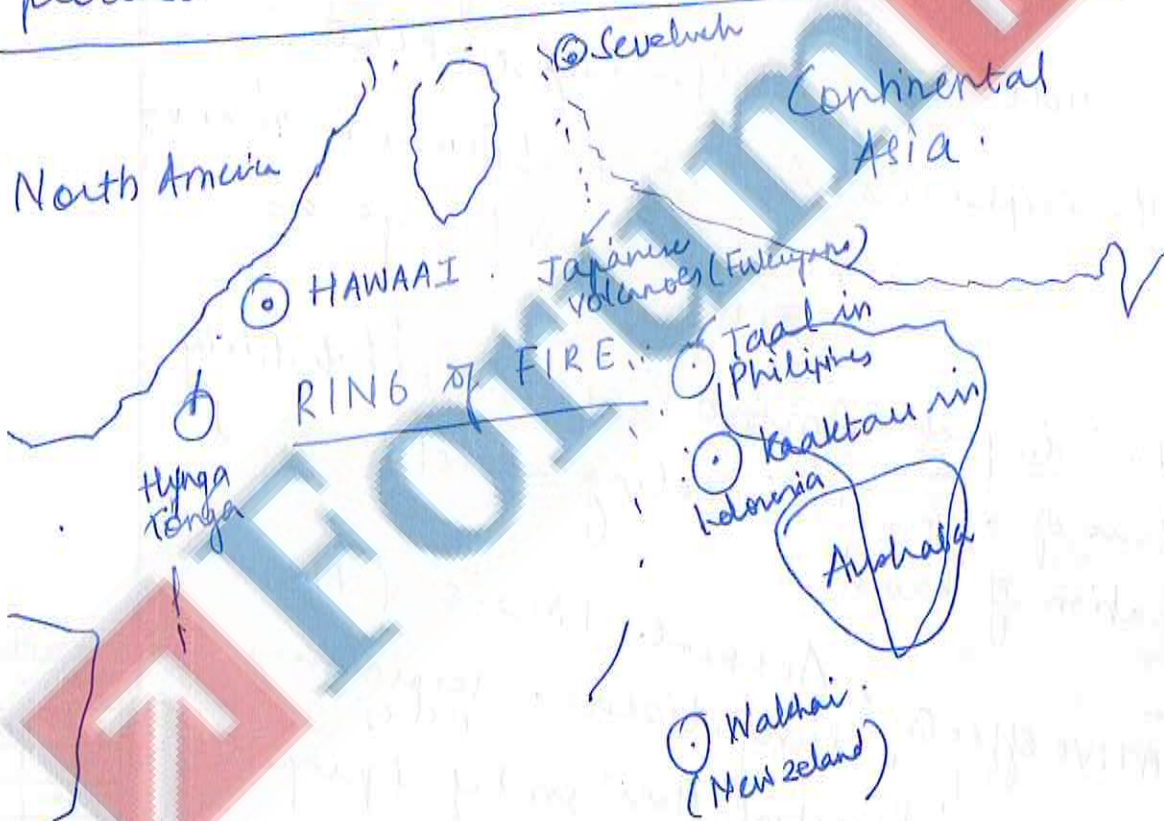 Seveluch
Continental
Asia.
North America
HAWAAI
Japanese
volcanoes (Fukuyama)
RING of FIRE
Taal in
Philipines
Kaaktau in
Indonesia
Hunga
Tonga
Australia
Wakhai
(New Zeland)
Forum